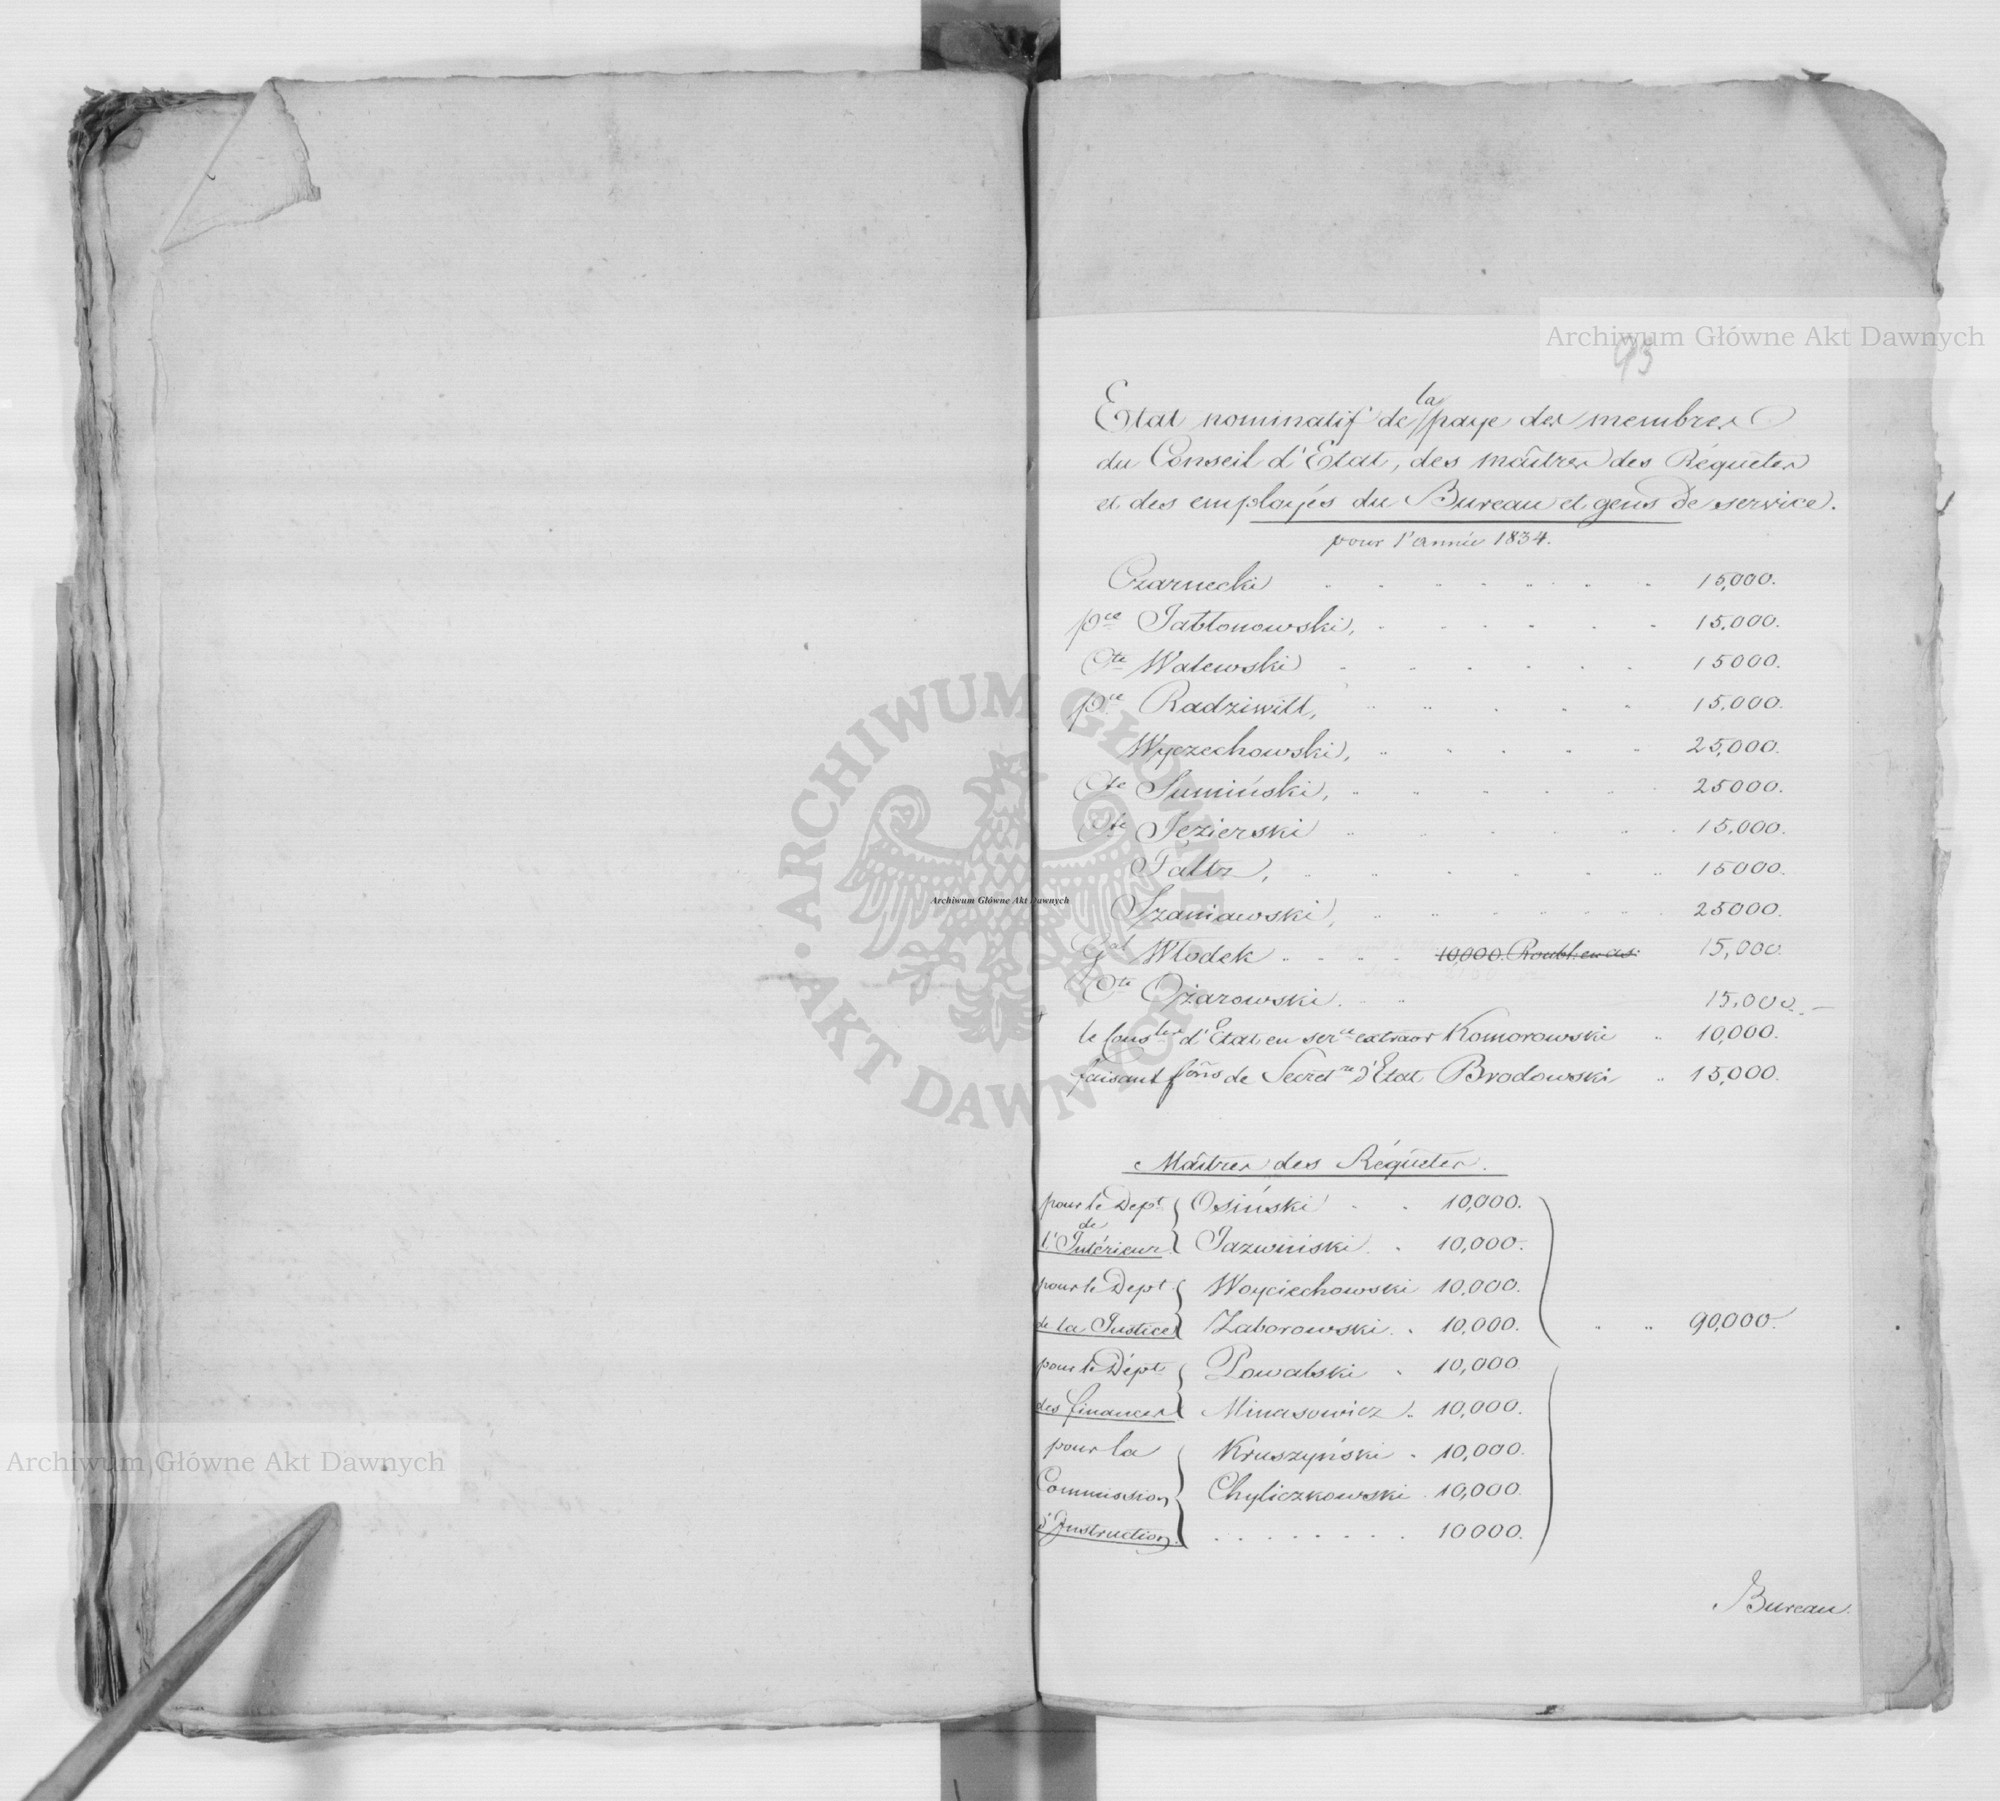 Archiwum Główne Akt Dawnych
93
Etat nominatif de la paye des membres
du Conseil d'Etat, des maîtres des Réquêtes
et des employés du Bureau et gens de service.
pour l'année 1834.
Czarnecki 15,000.
pce Jabłonowski, 15,000.
Cte Walewski 15000.
pce Radziwiłł, 15,000.
Wyczechowski, 25,000.
Cte Sumiński, 25000.
Cte Jezierski 15,000.
Faltz, 15000.
Szaniawski, 25000.
Gal Włodek 10,000. Roubl. en as. 15,000.
Cte Ożarowski. 15,000.
le Conslr d'Etat en serce extraor Komorowski 10,000.
faisant fons de Secretre d'Etat Brodowski 15,000.
Maîtres des Réquêtes.
pour le Dept Osiński 10,000.
de
l'Intérieur Jazwiński 10,000.
pour le Dept Woyciechowski 10,000.
de la Justice Zaborowski 10,000. 90,000.
pour le Dépt Powalski 10,000.
des finances Minasowicz 10,000.
pour la Kruszyński 10,000.
Commission Chyliczkowski 10,000.
d'Instruction 10000.
Bureau.
ARCHIWUM GŁÓWNE AKT DAWNYCH
Archiwum Główne Akt Dawnych
Archiwum Główne Akt Dawnych